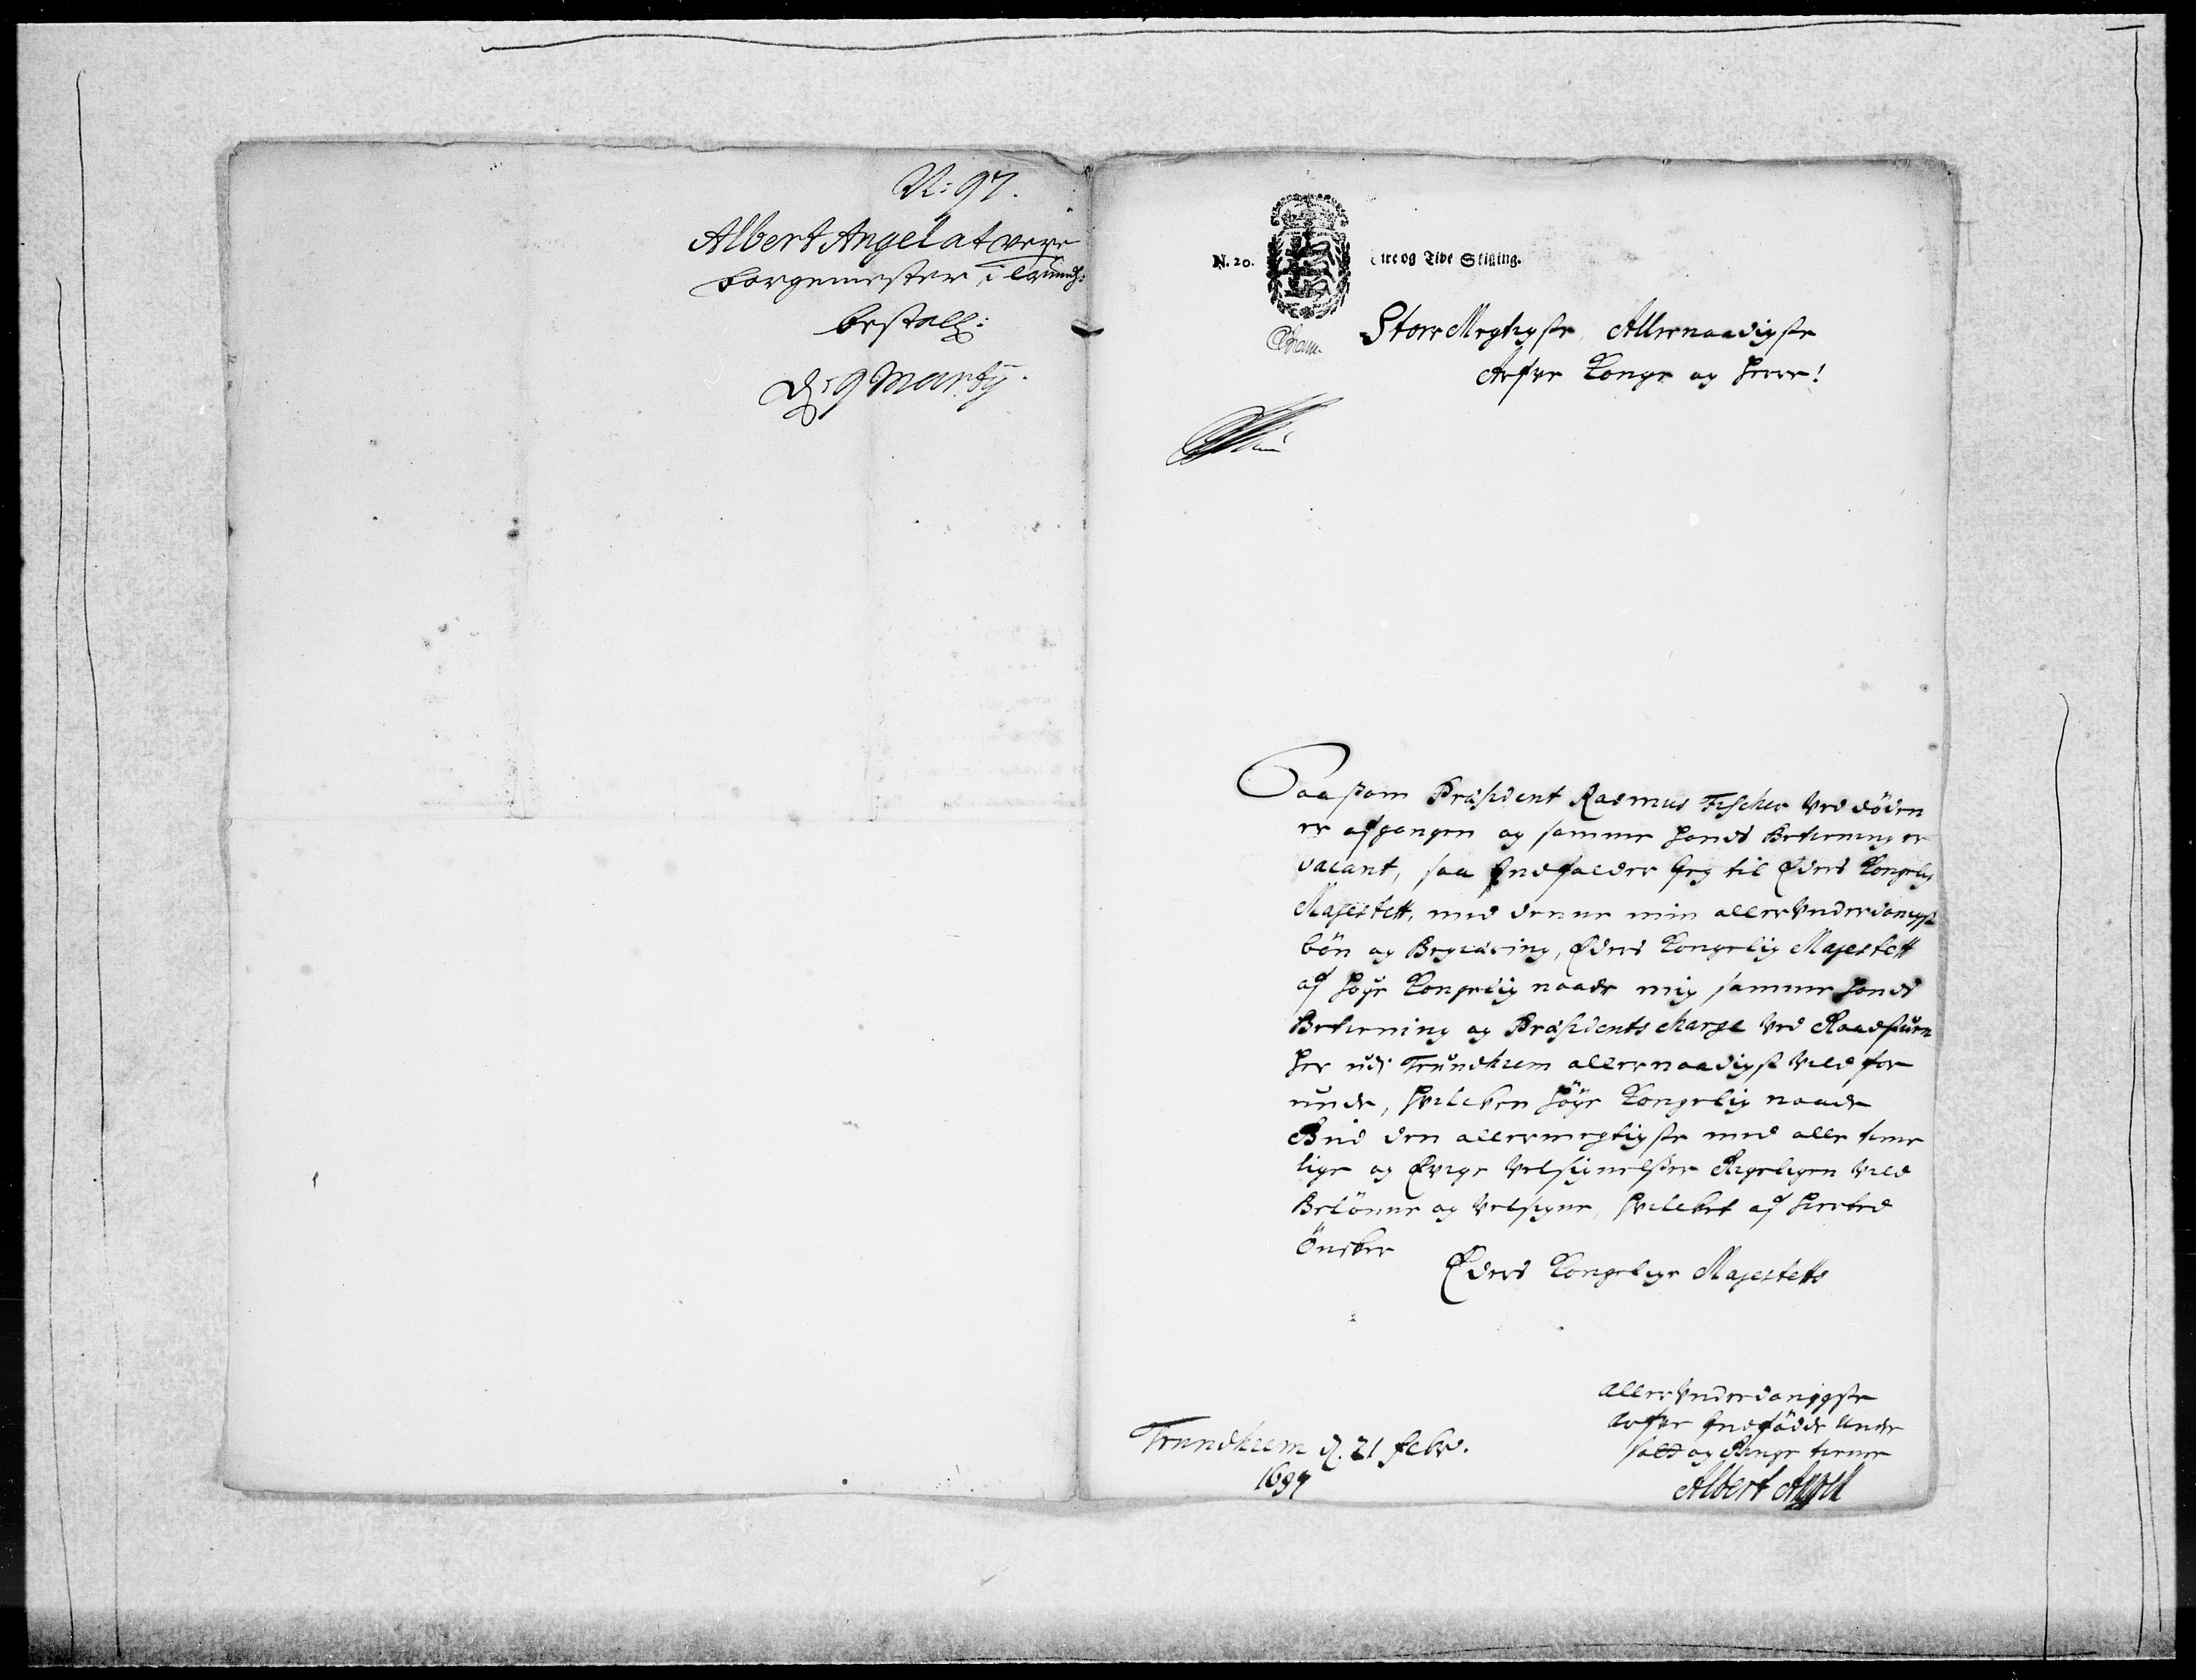 N: 97.
Albert Angel at vere
borgemester i Trundh:
bestall:
d: 9 Martij.
N. 20. tre og Tive Skilling.
StorMegtigste, Allernaadigste
Arfve Konge og Herre!
Saasom Præsident Rasmus Fischer ved döden
er afgangen og samme hands Betiening er
vacant, saa Indfalder Jeg til Eders Kongelig
Majestett, med denne min allerUnderdanigst
bön og Begiæring, Eders Kongelig Majestett
af höye Kongelig naade mig samme hands
Betierning og Præsidents charge ved Raadstuen
her udi Trundhiem allernaadigst vild for
unde, hvilcken höye Kongelig naade
Gud den allermegtigste med alle time
lige og Evige Velsignelser Rigeligen vild
Belönne og Velsigne, hvilcket af hierted
önsker
Eders Kongelige Majestetts
allerUnderdanigste
arfve Indfödde Under
saat og Ringe tiener
Albert Angell
Trundhiem d. 21 febr.
1697